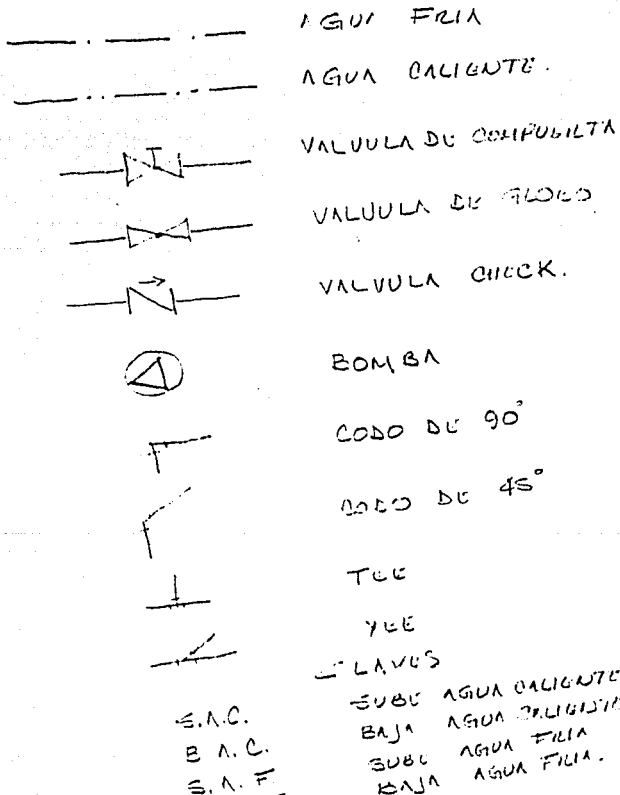 AGUA FRIA
AGUA CALIENTE.
VALVULA DE COMPUERTA
VALVULA DE GLOBO
VALVULA CHECK.
BOMBA
CODO DE 90°
CODO DE 45°
TEE
YEE
LLAVES
S.A.C. SUBE AGUA CALIENTE
B A.C. BAJA AGUA CALIENTE
S.A.F. SUBE AGUA FRIA
BAJA AGUA FRIA.